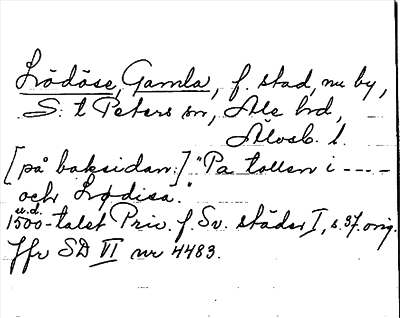 Lödöse, Gamla, f. stad, nu by,
S:t Peters sn, Ale hrd,
Älvsb. l.
[på baksidan:] "Pa tollen i ----
och Lødisa."
u.d.
1500-talet Priv. f. Sv. städer I, s. 37. orig.
Jfr SD VI nr 4483.